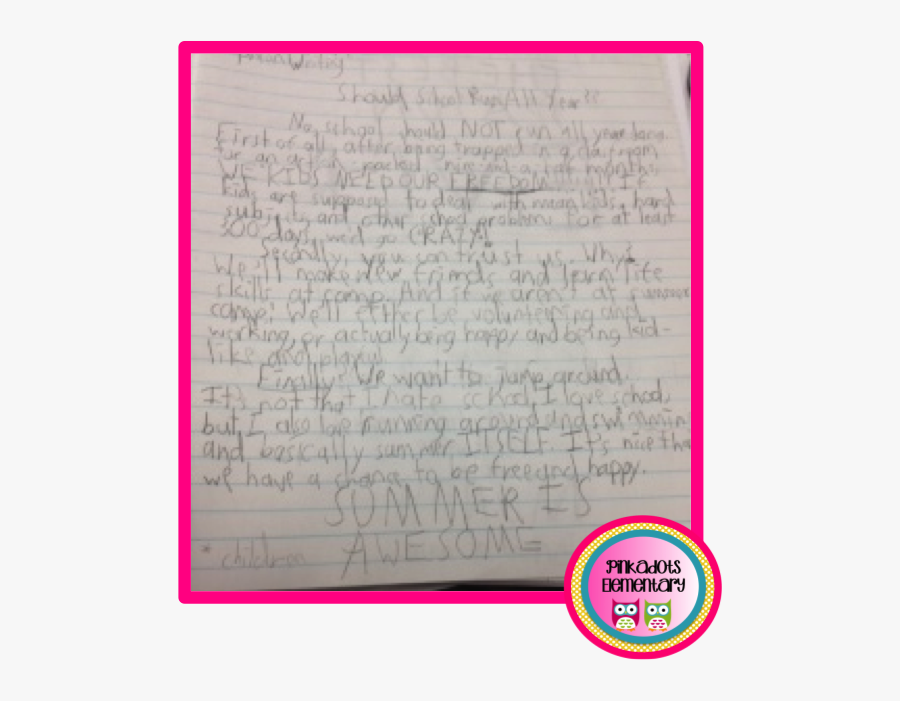 Should School Run All Year??
No, school should NOT run all year long.
First of all, after being trapped in a classroom
for an action-packed nine-and-a-half months,
WE KIDS NEED OUR FREEDOM If
kids are supposed to deal with mean kids, hard
subjects, and other school problems for at least
300 days, we'd go CRAZY!
Secondly, you can trust us. Why?
We'll make new friends and learn life
skills at camp. And if we aren't at summer
camp, we'll either be volunteering and
working, or actually being happy and being kid-
like and playful
Finally, We want to jump around.
It's not that I hate school, I love school,
but I also love running around and swimmin
and basically summer ITSELF. It's nice tha
we have a chance to be free and happy.
SUMMER IS
AWESOME
* children
Pinkadots
Elementary